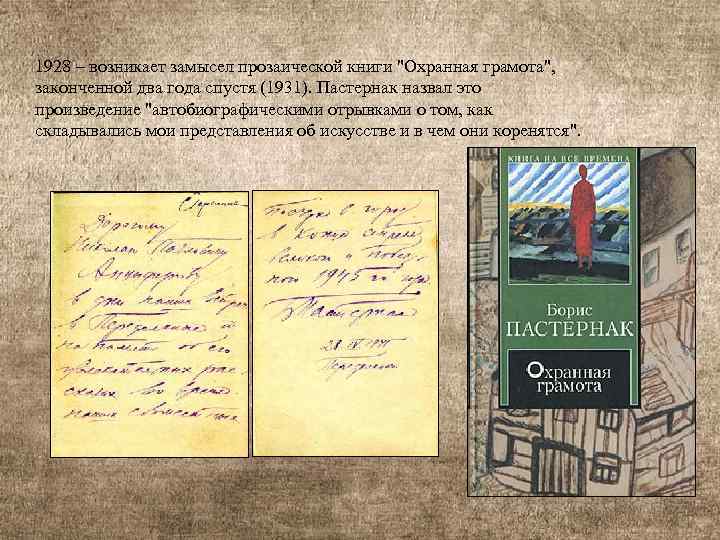 1928 – возникает замысел прозаической книги "Охранная грамота",
законченной два года спустя (1931). Пастернак назвал это
произведение "автобиографическими отрывками о том, как
складывались мои представления об искусстве и в чем они коренятся".
Дорогому
Николаю Павловичу
Анциферову
в дни наших встреч
в Переделкине и
на память об его
увлекательных рас-
сказах во время
наших совместных
поездок в город
в конце
великой и побед-
ного 1945 го года
Пастернак
Переделкино
КНИГА НА ВСЕ ВРЕМЕНА
Борис
ПАСТЕРНАК
Охранная
грамота